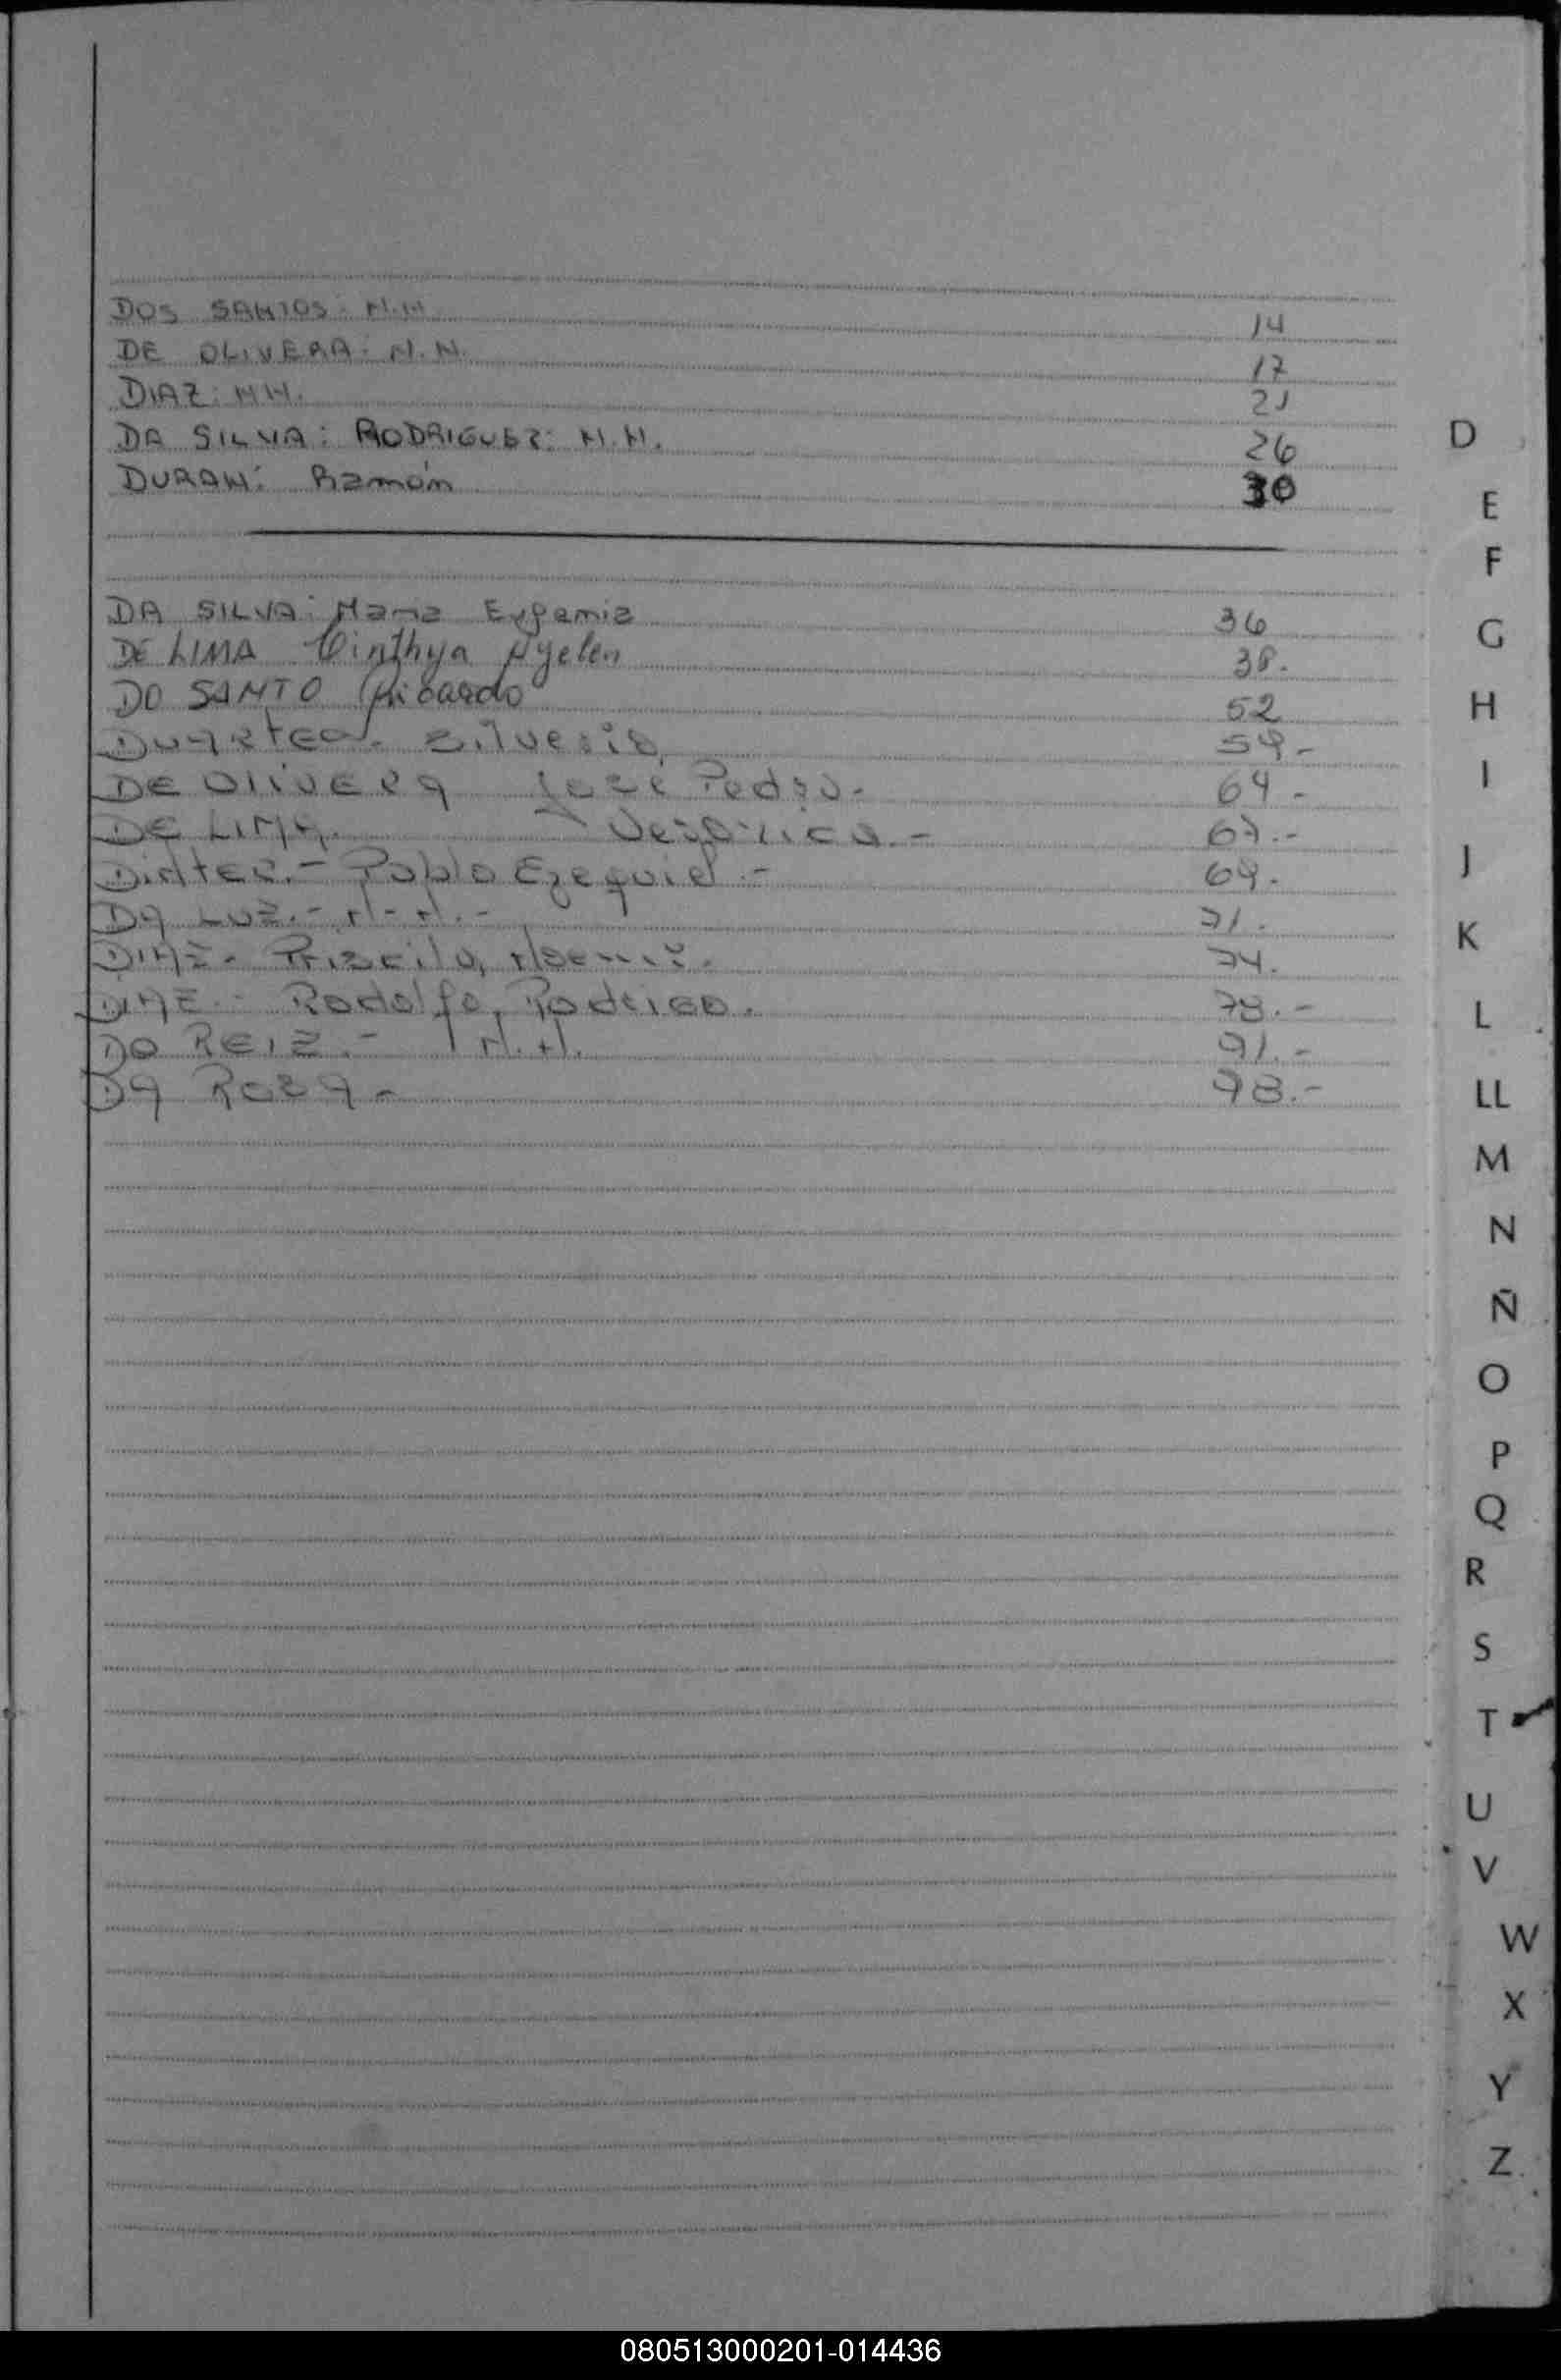 DOS SANTOS: N.N. 14
DE OLIVERA: N.N. 17
DIAZ: NN. 21
DA SILVA: RODRIGUEZ: N.N. 26
DURAN: Ramón 30
DA SILVA: Maria Eugenia 36
DE LIMA Cinthya Ayelen 38.
DO SANTO Ricardo 52
Duarte Silverio 54.-
DE OliVERA Jose Pedro. 64.-
DE LIMA. Veronica.- 67.-
Pablo Ezequiel.- 69.
DA LUZ.- N-N.- 71.
DIAZ. Priscila, Noemi. 74.
DIAZ. Rodolfo, Rodrigo. 78.-
DO REIZ.- N.N. 91.-
DA ROSA.- 98.-
D
E
F
G
H
I
J
K
L
LL
M
N
Ñ
O
P
Q
R
S
T
U
V
W
X
Y
Z
080513000201-014436